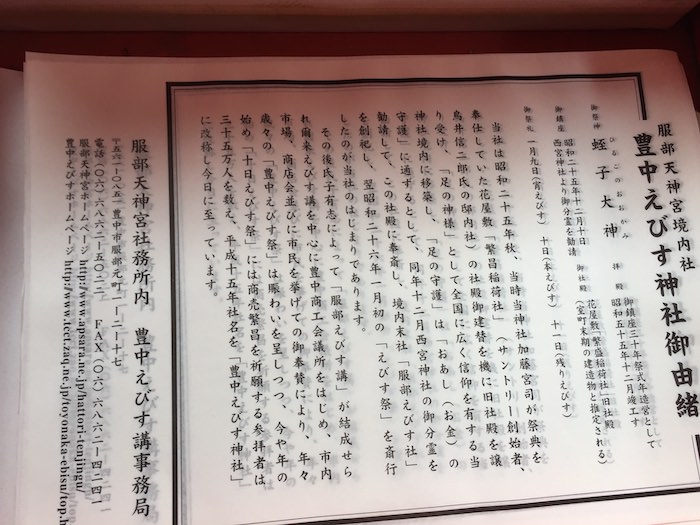 服部天神宮境内社
豊中えびす神社御由緒
御祭神 蛭子大神
ひるこのおおがみ
御鎮座 昭和二十五年十二月十日
西宮神社より御分霊を勧請
拝殿 御鎮座三十年祭式年造営として
昭和五十五年十二月竣工す
御社殿 花屋敷「繁盛稲荷社」旧社殿
(室町末期の建造物と推定される)
御祭礼 一月九日(宵えびす) 十日(本えびす) 十一日(残りえびす)
当社は昭和二十五年秋、当時当神社加藤宮司が祭典を
奉仕していた花屋敷「繁昌稲荷社」(サントリー創始者、
鳥井信二郎氏の邸内社)の社殿御建替を機に旧社殿を譲
り受け、「足の神様」として全国に広く信仰を有する当
神社境内に移築し、「足の守護」は「おあし(お金)の
守護」に通ずるとして、同年十二月西宮神社の御分霊を
勧請して、この社殿に奉斎し、境内末社「服部えびす社」
を創祀し、翌昭和二十六年一月初の「えびす祭」を斎行
したのが当社のはじまりであります。
その後氏子有志によって「服部えびす講」が結成せら
れ爾来えびす講を中心に豊中商工会議所をはじめ、市内
市場、商店会並びに市民を挙げての御奉賛により、年々
歳々の「豊中えびす祭」は賑わいを呈しつつ、今や年の
始め「十日えびす祭」には商売繁昌を祈願する参拝者は
三十五万人を数え、平成十五年社名を「豊中えびす神社」
に改称し今日に至っています。
服部天神宮社務所内 豊中えびす講事務局
〒五六一-〇八五一 豊中市服部元町一-二-十七
電話(〇六)六八六二-五〇二二 FAX(〇六)六八六二-四二四一
服部天神宮ホームページ http://www.apsara.ne.jp/hattori-tenjingu/
豊中えびすホームページ http://www.tcct.zaq.ne.jp/toyonaka-ebisu/top.h